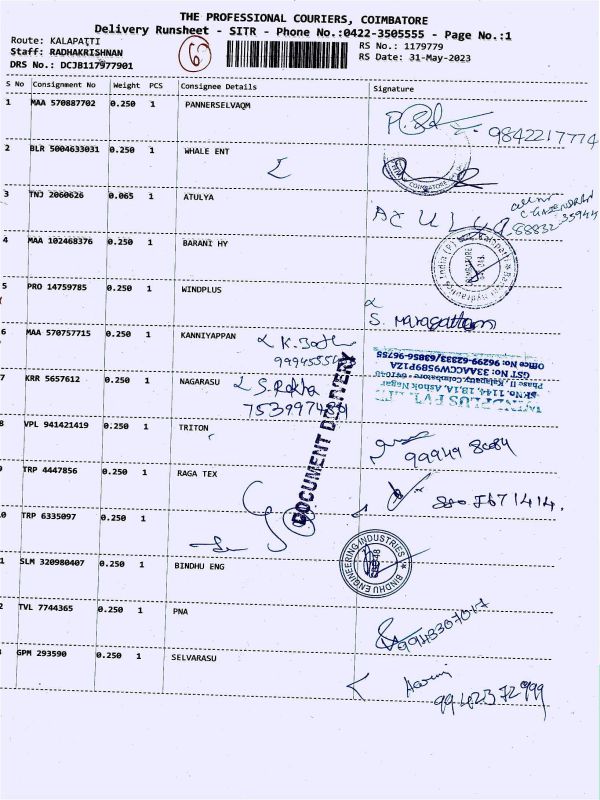 THE PROFESSIONAL COURIERS, COIMBATORE
Delivery Runsheet - SITR - Phone No.:0422-3505555 - Page No.:1
Route: KALAPATTI
RS No.: 1179779
Staff: RADHAKRISHNAN
6
RS Date: 31-May-2023
DRS No.: DCJB117977901
S No Consignment No Weight PCS Consignee Details Signature
1 MAA 570887702 0.250 1 PANNERSELVAQM
9842217774
2 BLR 5004633031 0.250 1 WHALE ENT
COIMBATORE
3 TNJ 2060626 0.065 1 ATULYA
4 MAA 102468376 0.250 1 BARANI HY
5 PRO 14759785 0.250 1 WINDPLUS
6 MAA 570757715 0.250 1 KANNIYAPPAN
7 KRR 5657612 0.250 1 NAGARASU
S. Rekha
Office No: 96299-62333/63856-96755
GST NO: 33AAACCW8589P1ZA
Phase II, Kalapatty, Coimbatore 641048
SKNo. 1144, 18,1A, Ashok Nagar
DOCUMENT DELIVERY
8 VPL 941421419 0.250 1 TRITON
99949 8084
TRP 4447856 0.250 1 RAGA TEX
0 TRP 6335097 0.250 1
1 SLM 320980407 0.250 1 BINDHU ENG
BINDHU ENGINEERING INDUSTRIES
2 TVL 7744365 0.250 1 PNA
9943307017
GPM 293590 0.250 1 SELVARASU
9942372999